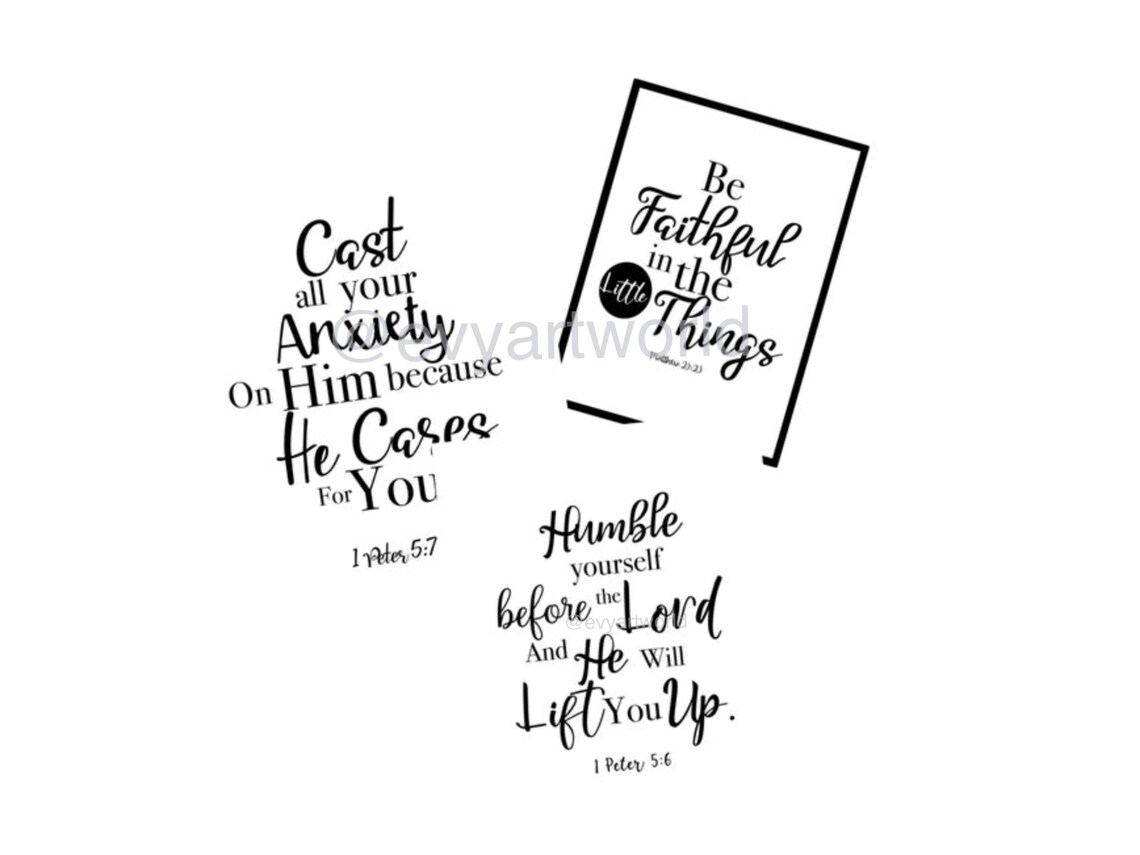 Cast
all your
Anxiety
On Him because
He Cares
For You
1 Peter 5:7
Be
Faithful
in the
Little Things
@evyartworld
Humble
yourself
before the Lord
@evyartworld
And He Will
Lift You Up.
1 Peter 5:6